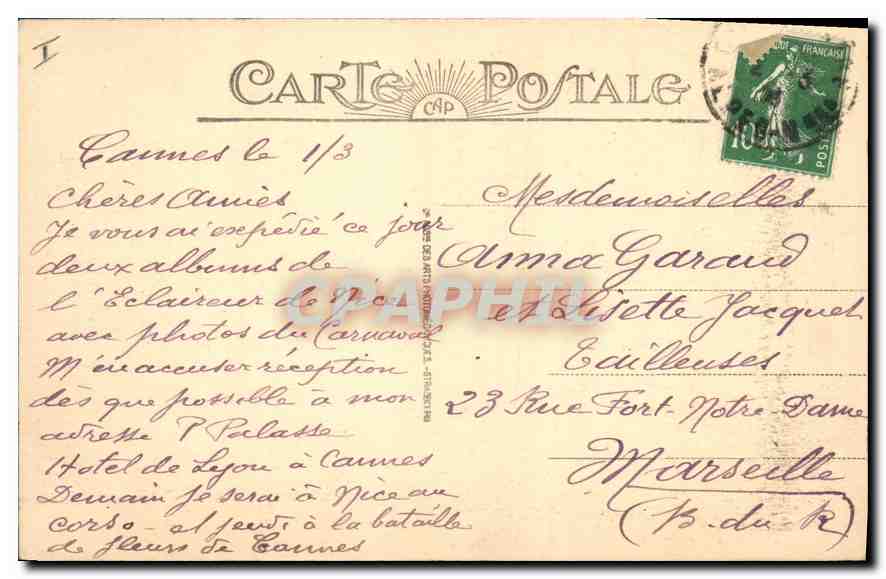 I
CARTE POSTALE
CAP
FRANÇAISE
POSTES
10
Cannes le 1/3
Chères Amies
Je vous ai expédié ce jour
deux albums de
l'Eclaireur de Nice
avec photos du Carnaval
M'en accuser réception
dès que possible à mon
adresse P Palasse
Hotel de Lyon à Cannes
Demain je serai à Nice au
corso - et jeudi à la bataille
de fleurs de Cannes
DES ARTS
Mesdemoiselles
Anna Garaud
et Lisette Jacquet
Tailleuses
23 Rue Fort-Notre-Dame
Marseille
(B. du R)
CPAPHIL